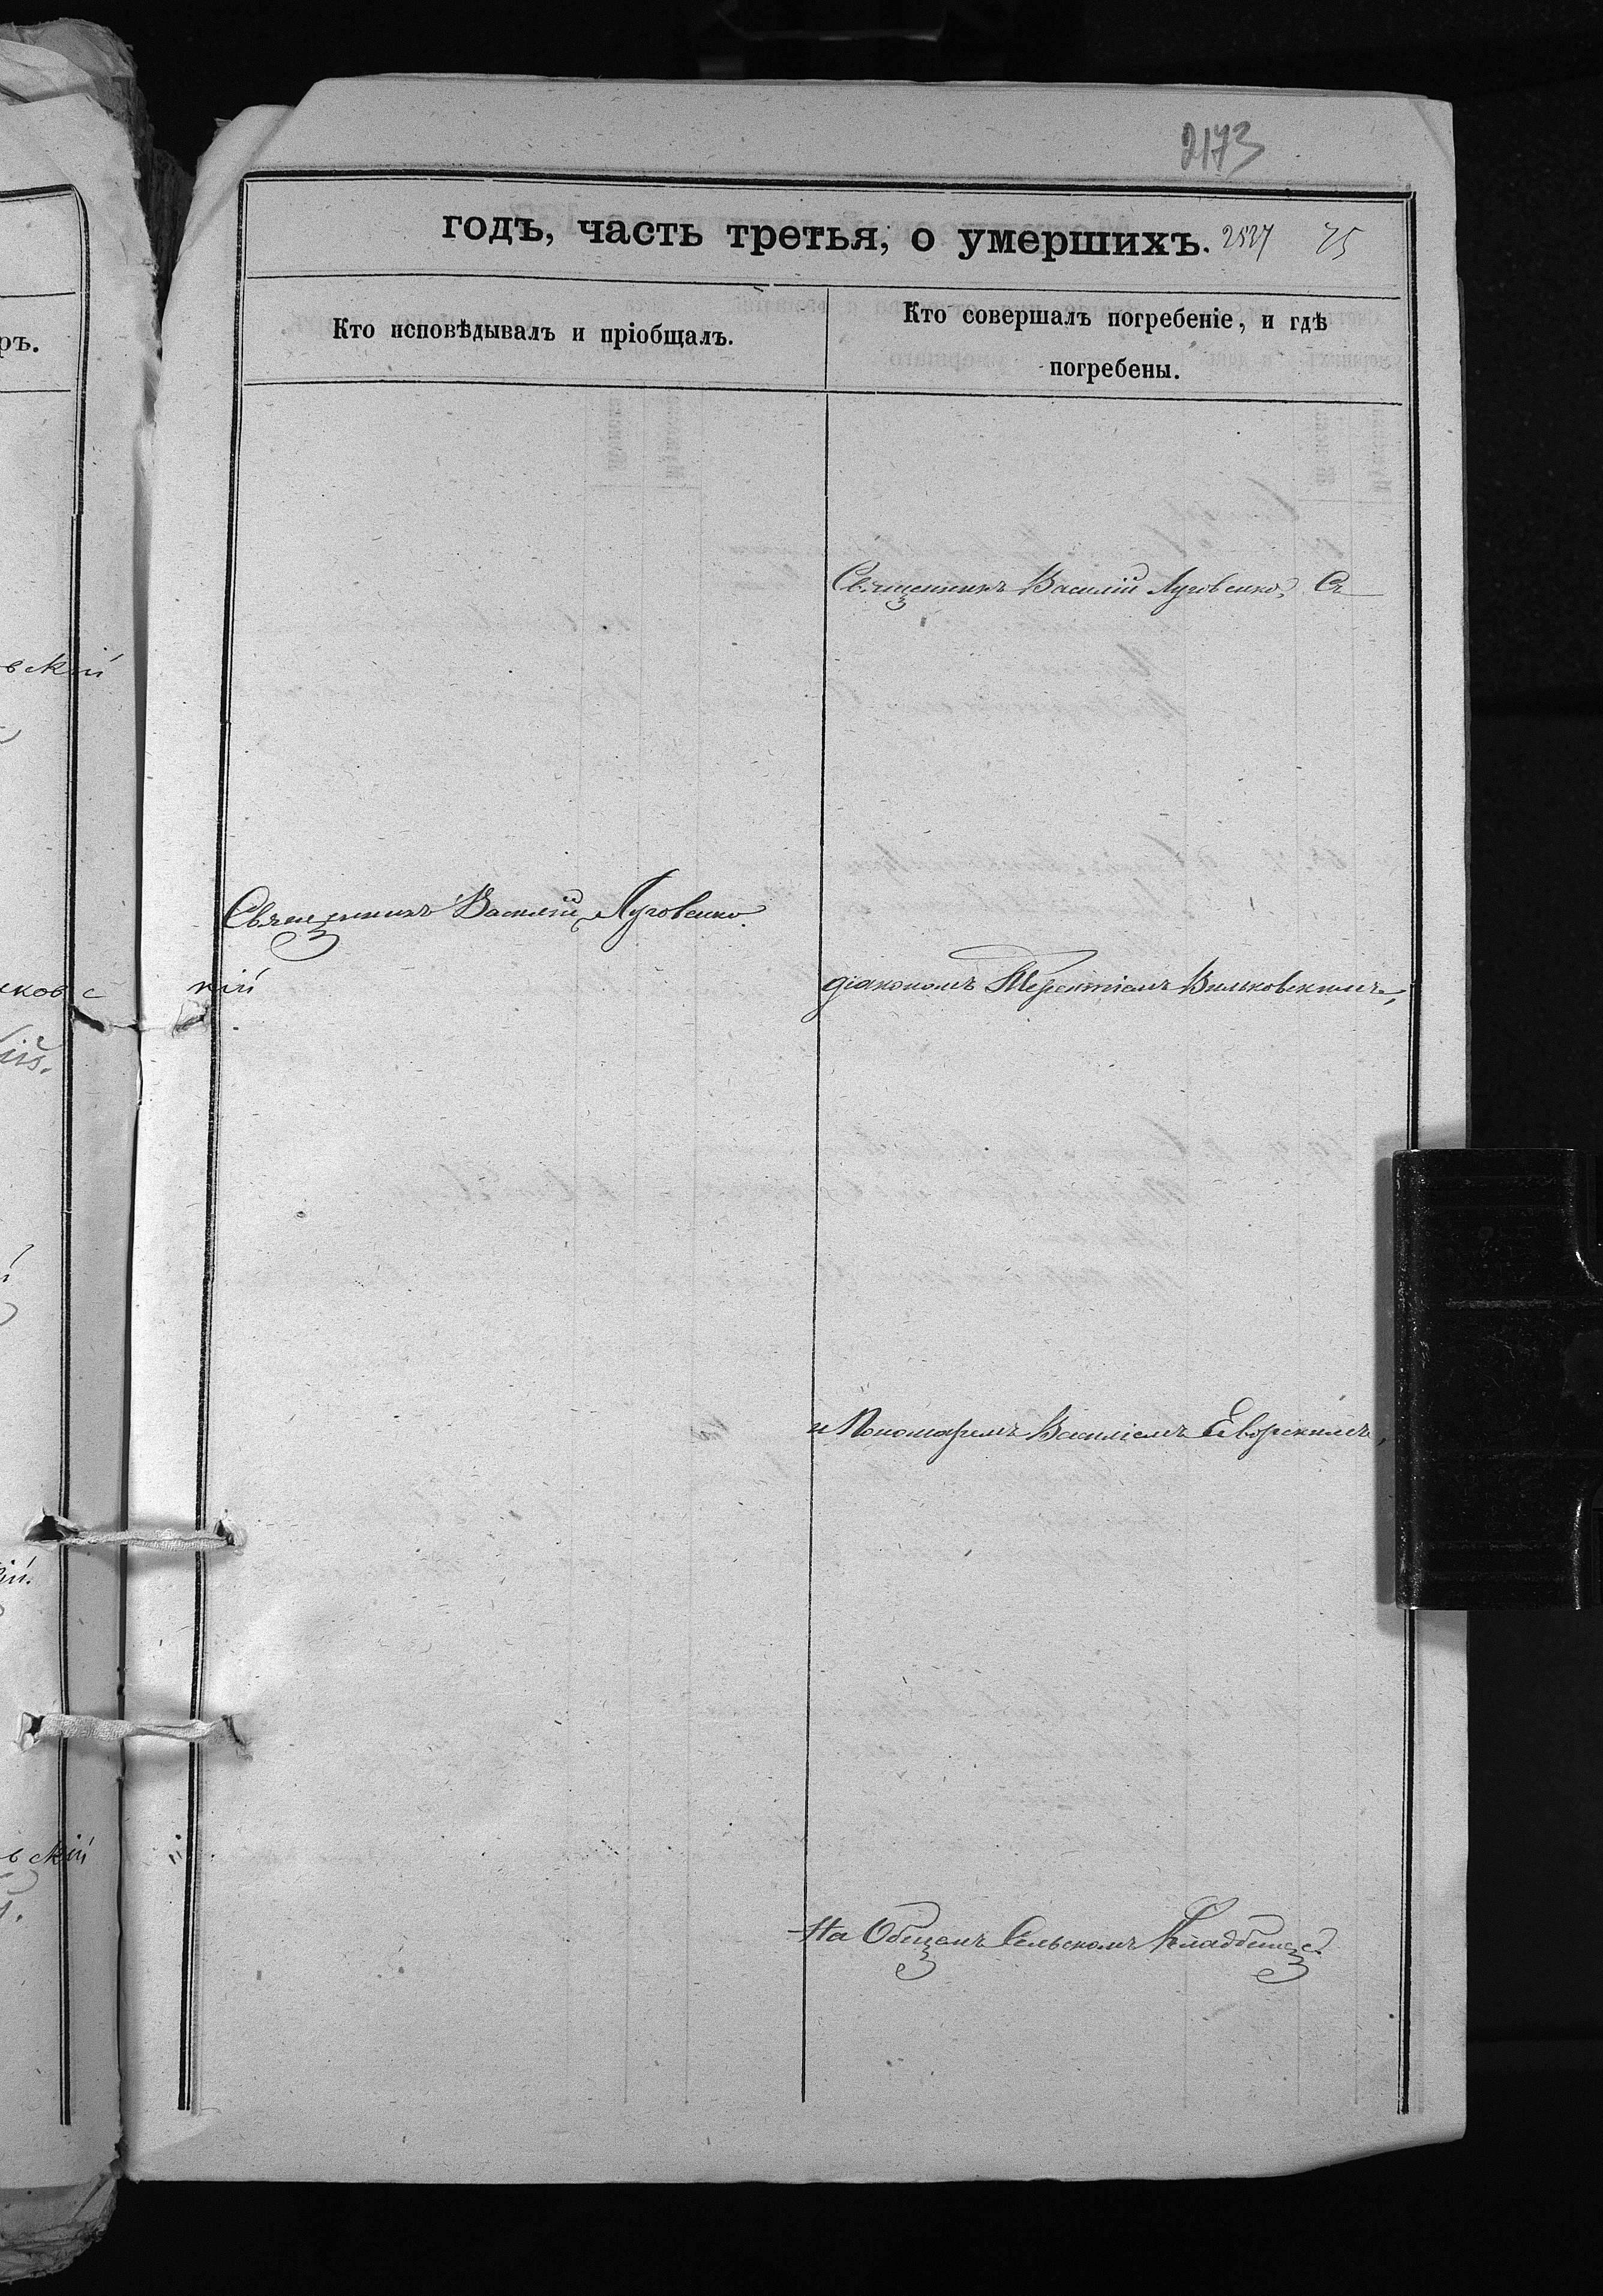 2173
годъ, часть третья, о умершихъ. 2527 75
Кто исповѣдывалъ и пріобщалъ.
Кто совершалъ погребеніе, и гдѣ
погребены.
Священникъ Василій Луговенко, Съ
Священникъ Василій Луговенко.
діакономъ Терентіемъ Вильковскимъ,
и Пономаремъ Василіемъ Еворскимъ,
На Общемъ Сельскомъ Кладбищѣ.
ръ.
вскій
ковс кій
вскій